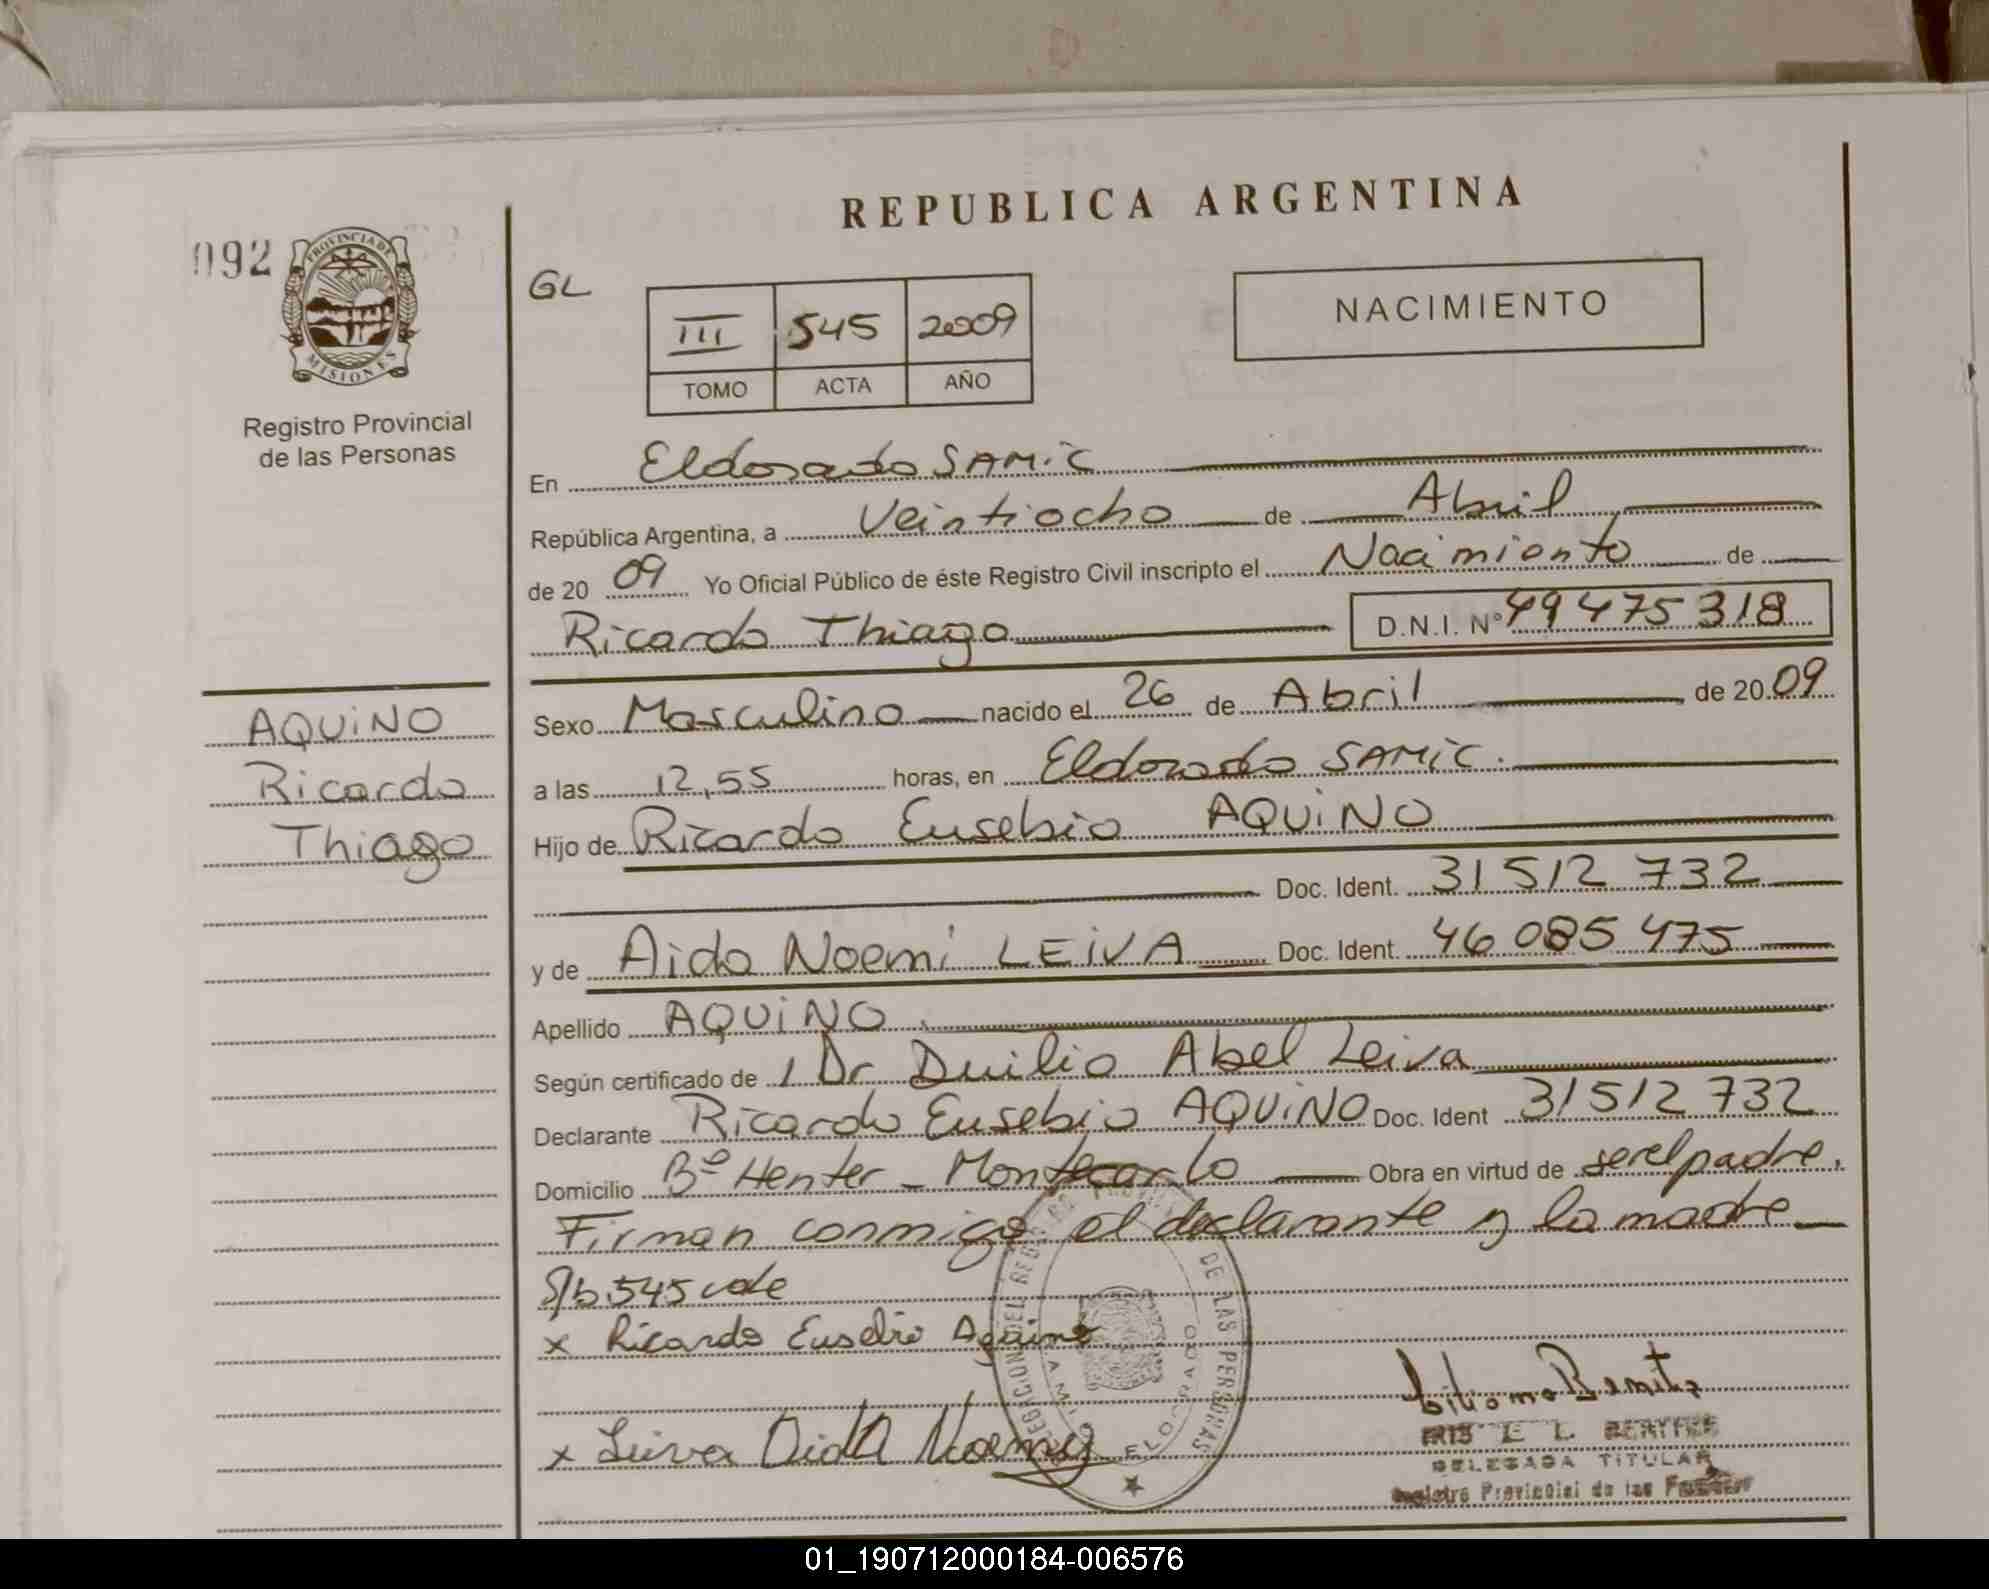 REPUBLICA ARGENTINA
092
PROVINCIA DE
MISIONES
Registro Provincial
de las Personas
GL
III 545 2009
TOMO ACTA AÑO
NACIMIENTO
En Eldorado SAMiC
República Argentina, a Veintiocho de Abril
de 20 09 Yo Oficial Público de éste Registro Civil inscripto el Nacimiento de
Ricardo Thiago D.N.I. Nº 49 475 318
AQUiNO
Ricardo
Thiago
Sexo Masculino nacido el 26 de Abril de 20 09
a las 12,55 horas, en Eldorado SAMiC.
Hijo de Ricardo Eusebio AQUiNO
Doc. Ident. 31 512 732
y de Aida Noemi LEiVA Doc. Ident. 46 085 475
Apellido AQUiNO
Según certificado de Dr Duilio Abel Leiva
Declarante Ricardo Eusebio AQUiNO Doc. Ident 31 512 732
Domicilio Bº Henter - Montecarlo Obra en virtud de ser el padre.
Firman conmigo el declarante y la madre
S/b 545 vale
x Ricardo Eusebio Aquino
x Leiva Aida Noemy
DE LAS PERSONAS
DELEGADA TITULAR
Registro Provincial de las
01_190712000184-006576